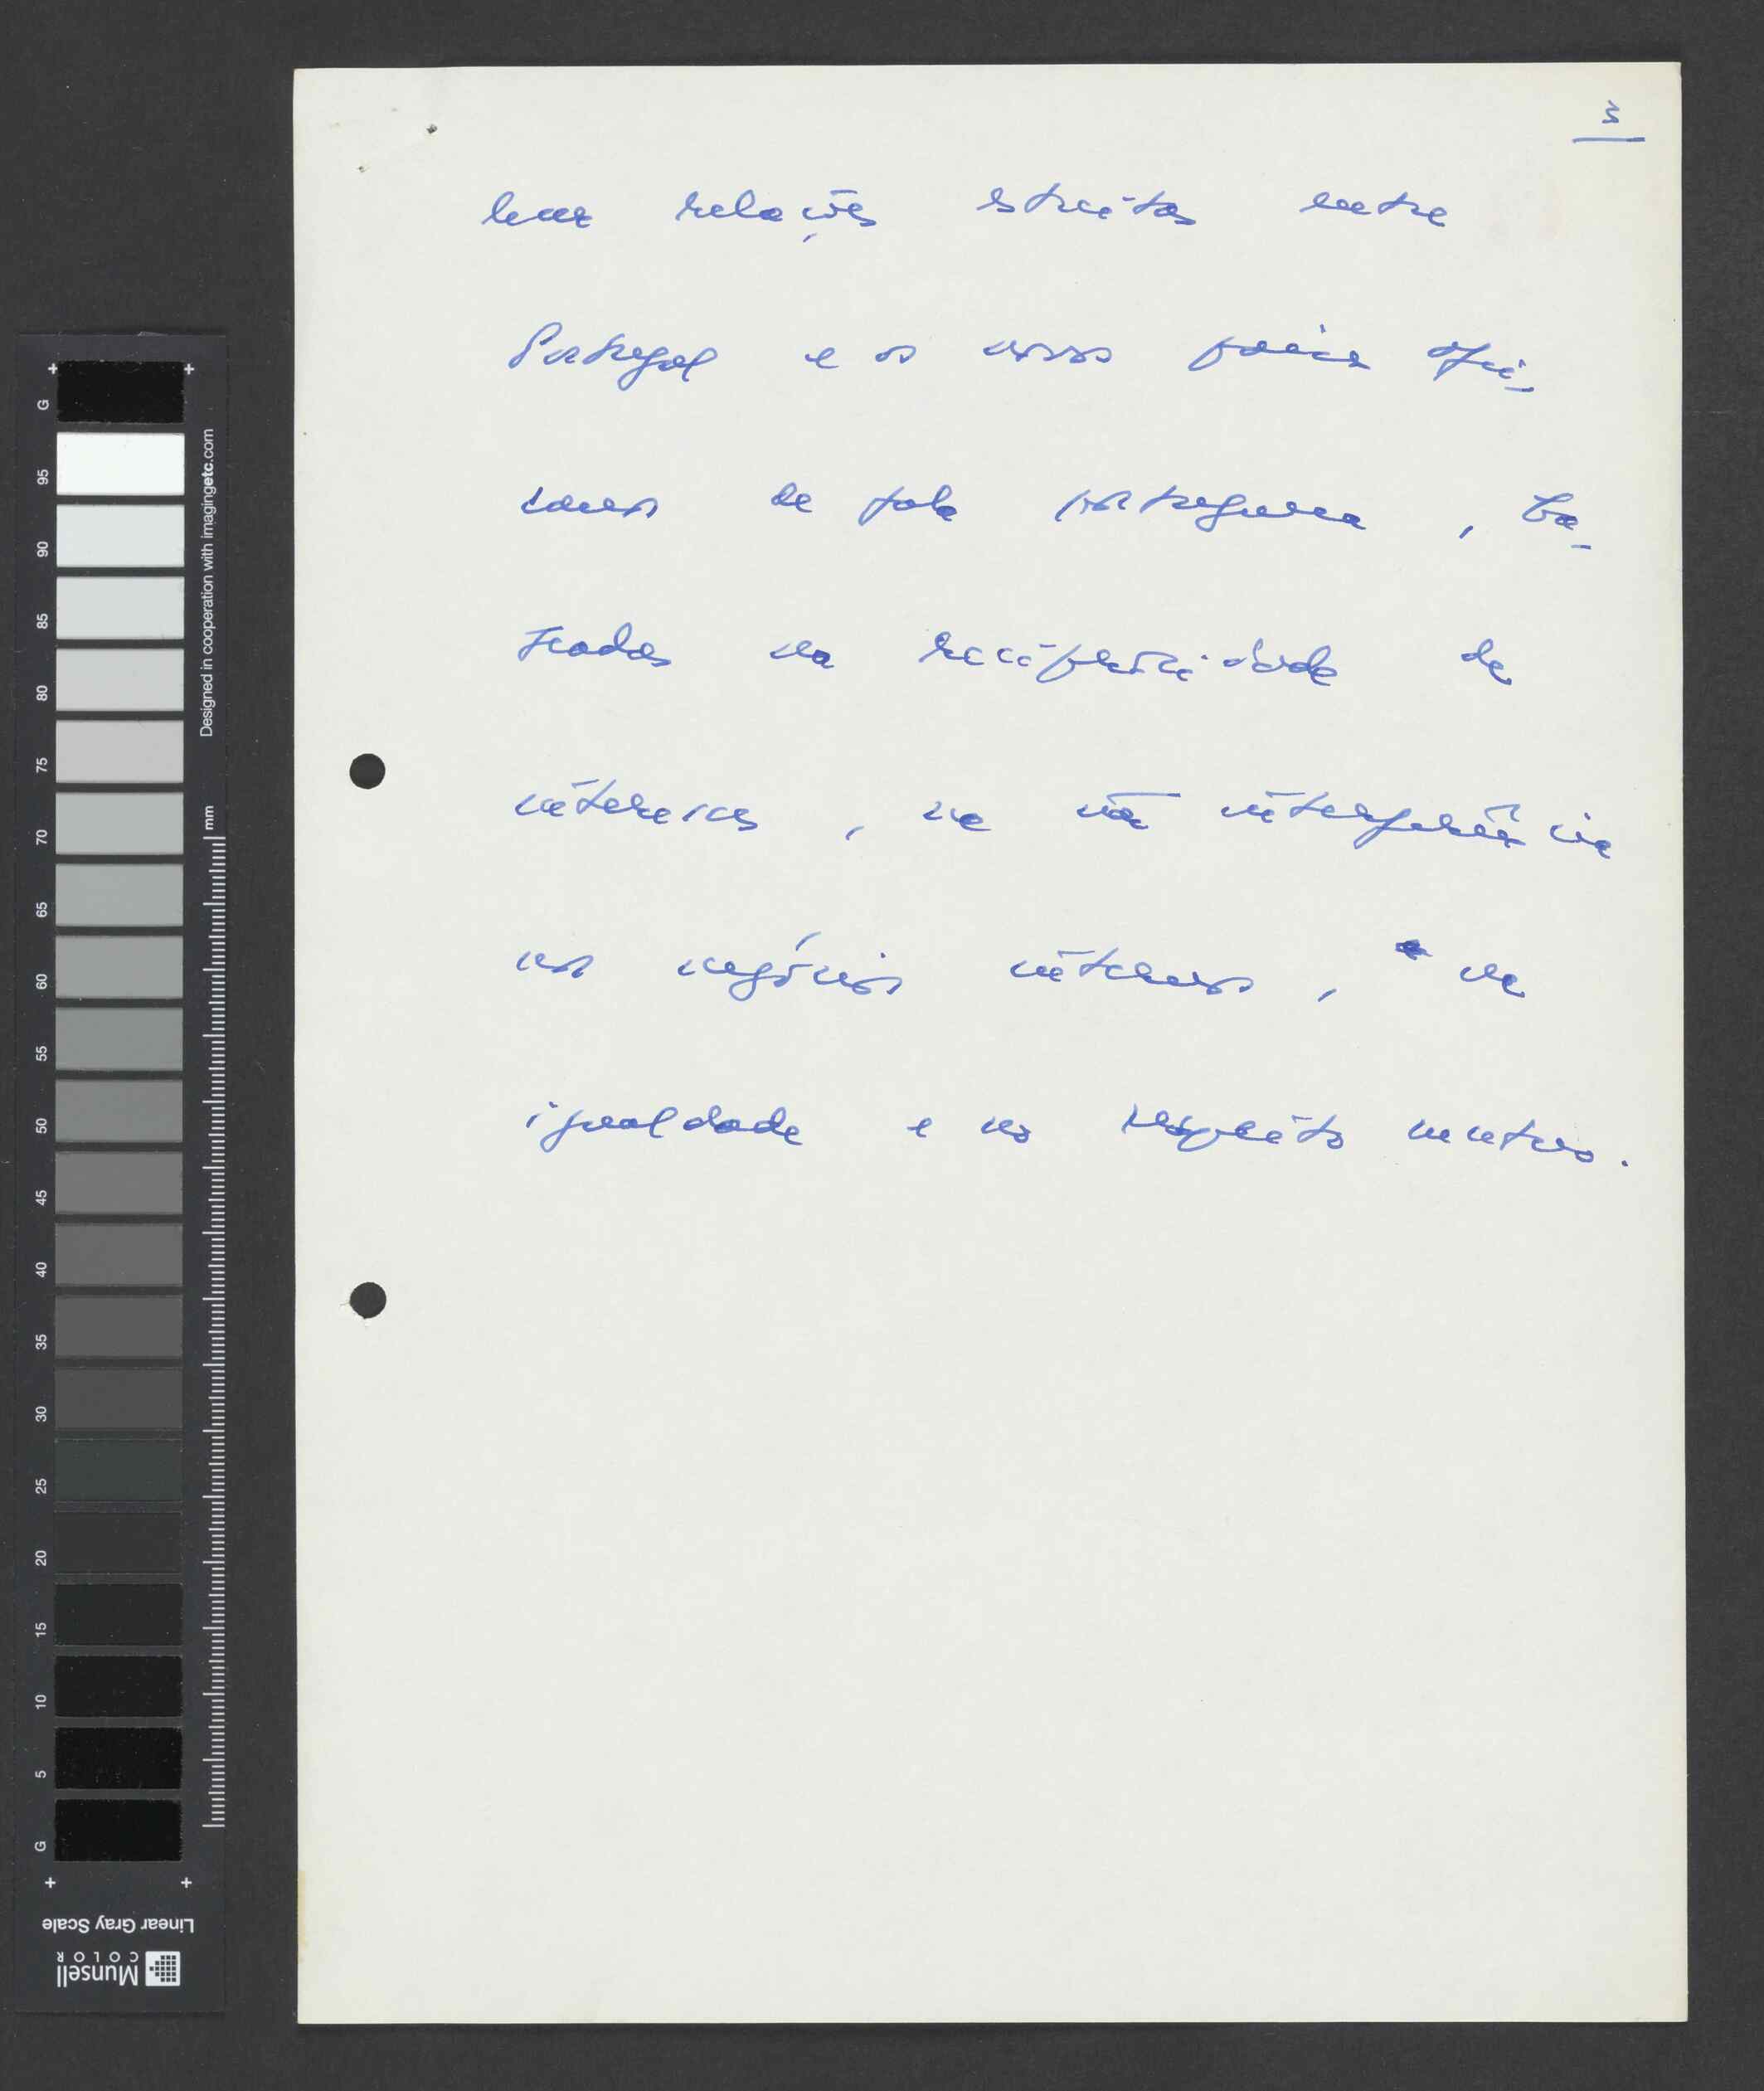 3
bem relações estreitas entre
Portugal e os novos países afri-
canos de fala portuguesa, ba-
seadas na reciprocidade de
interesses, na não interferência
nos negócios internos, na
igualdade e no respeito mútuo.
G
95
90
85
80
75
70
65
60
55
50
45
40
35
30
25
20
15
10
5
G
Designed in cooperation with imagingetc.com
mm
Linear Gray Scale
Munsell
COLOR